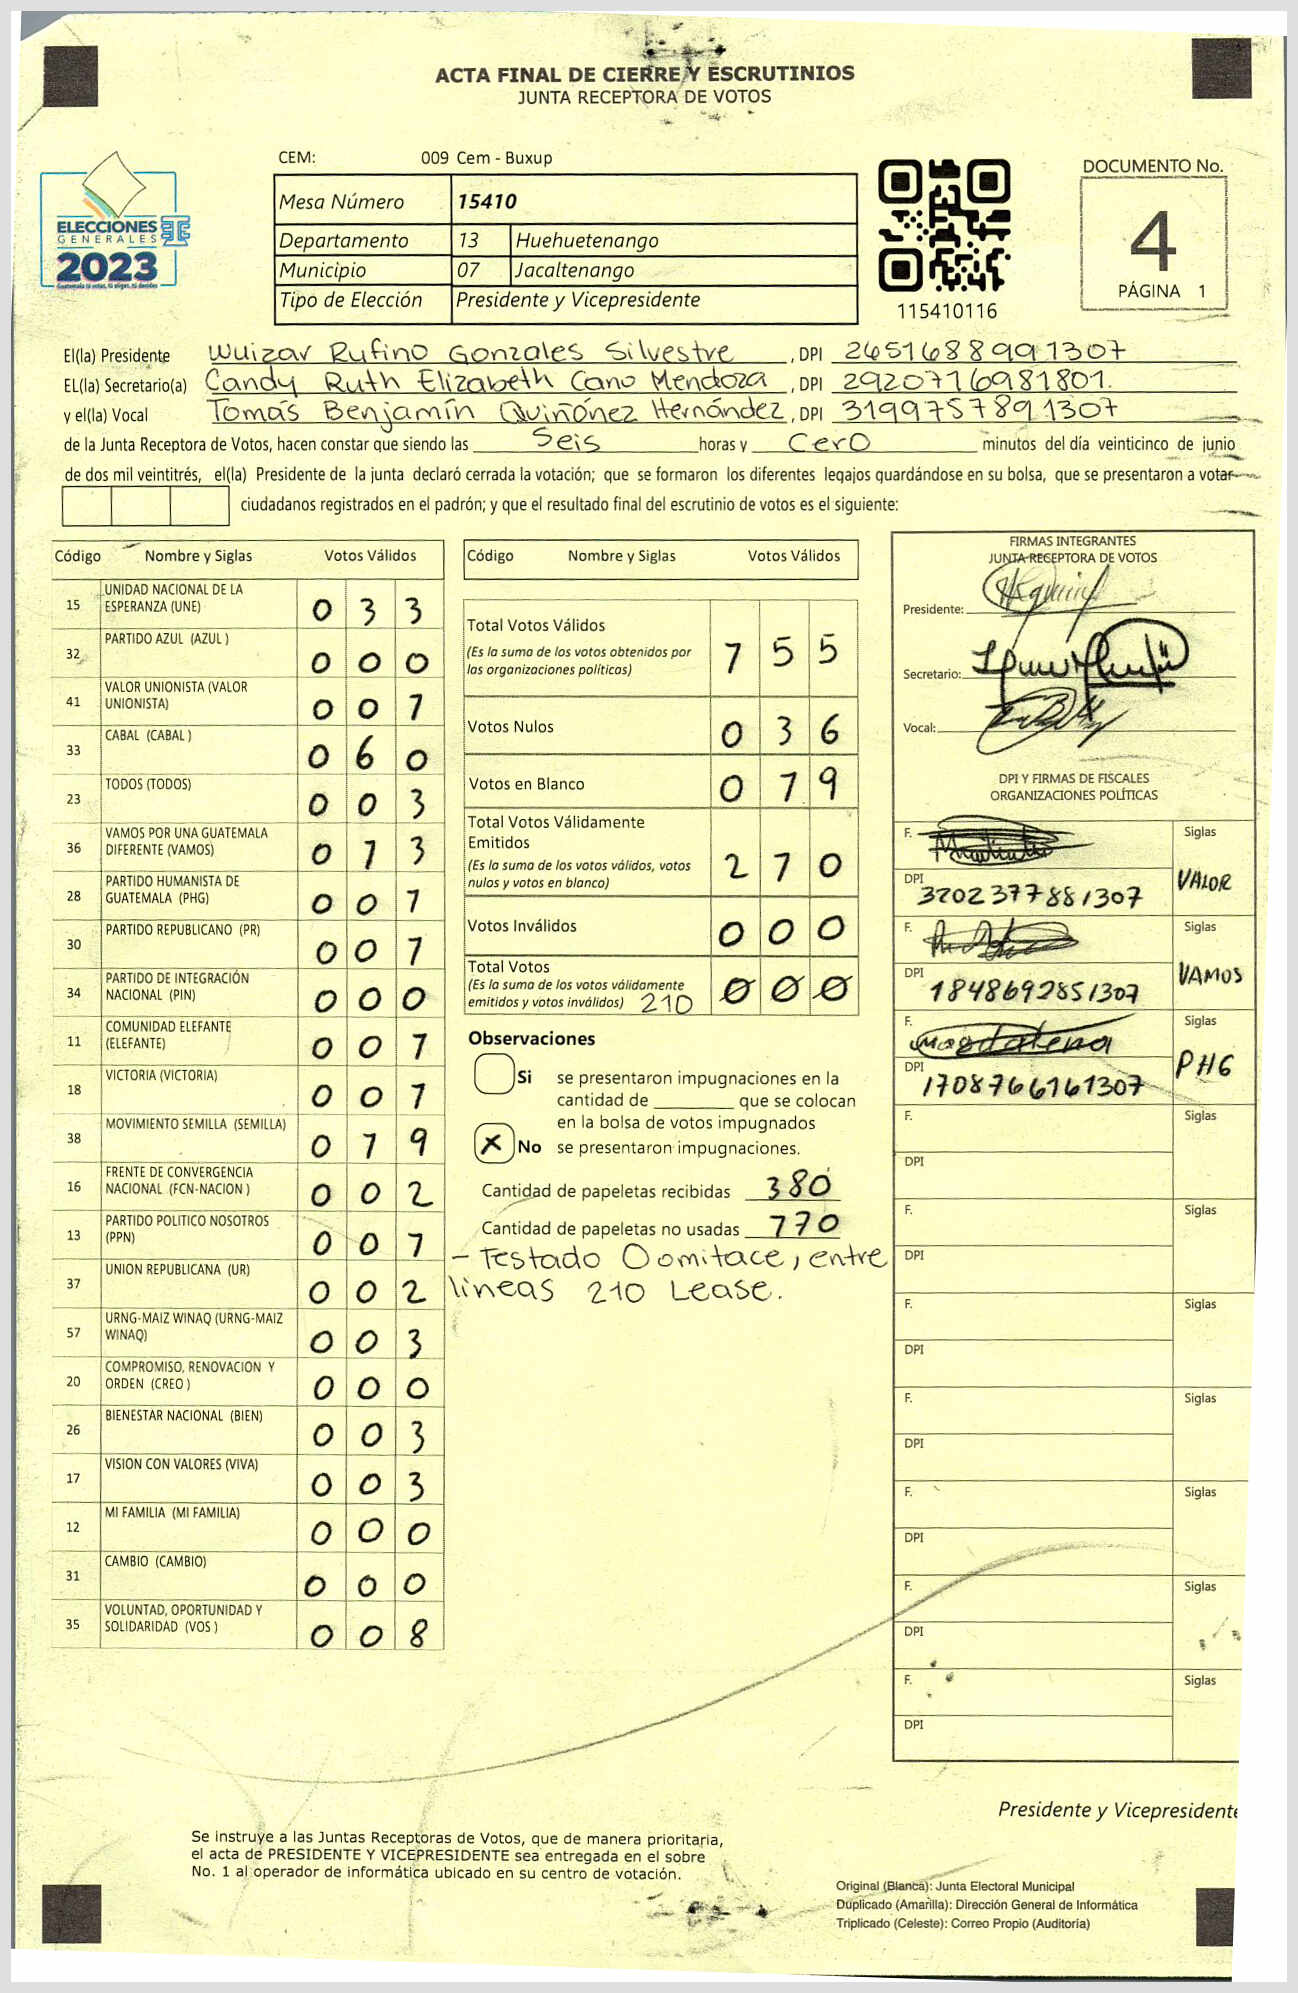 ACTA FINAL DE CIERRE Y ESCRUTINIOS
JUNTA RECEPTORA DE VOTOS
ELECCIONES
GENERALES
2023
Guatemala tú votas, tú eliges, tú decides
CEM: 009 Cem - Buxup
Mesa Número 15410
Departamento 13 Huehuetenango
Municipio 07 Jacaltenango
Tipo de Elección Presidente y Vicepresidente
115410116
DOCUMENTO No.
4
PÁGINA 1
El(la) Presidente Wuizar Rufino Gonzales Silvestre, DPI 2651688991307
EL(la) Secretario(a) Candy Ruth Elizabeth Cano Mendoza, DPI 2920716981801.
y el(la) Vocal Tomás Benjamín Quiñónez Hernández, DPI 3199757891307
de la Junta Receptora de Votos, hacen constar que siendo las Seis horas y Cero minutos del día veinticinco de junio
de dos mil veintitrés, el(la) Presidente de la junta declaró cerrada la votación; que se formaron los diferentes legajos guardándose en su bolsa, que se presentaron a votar
ciudadanos registrados en el padrón; y que el resultado final del escrutinio de votos es el siguiente:
Código Nombre y Siglas Votos Válidos
15 UNIDAD NACIONAL DE LA
ESPERANZA (UNE) 0 3 3
32 PARTIDO AZUL (AZUL ) 0 0 0
41 VALOR UNIONISTA (VALOR
UNIONISTA) 0 0 1
33 CABAL (CABAL ) 0 6 0
23 TODOS (TODOS) 0 0 3
36 VAMOS POR UNA GUATEMALA
DIFERENTE (VAMOS) 0 1 3
28 PARTIDO HUMANISTA DE
GUATEMALA (PHG) 0 0 1
30 PARTIDO REPUBLICANO (PR) 0 0 1
34 PARTIDO DE INTEGRACIÓN
NACIONAL (PIN) 0 0 0
11 COMUNIDAD ELEFANTE
(ELEFANTE) 0 0 1
18 VICTORIA (VICTORIA) 0 0 1
38 MOVIMIENTO SEMILLA (SEMILLA) 0 1 9
16 FRENTE DE CONVERGENCIA
NACIONAL (FCN-NACION ) 0 0 2
13 PARTIDO POLITICO NOSOTROS
(PPN) 0 0 1
37 UNION REPUBLICANA (UR) 0 0 2
57 URNG-MAIZ WINAQ (URNG-MAIZ
WINAQ) 0 0 3
20 COMPROMISO, RENOVACION Y
ORDEN (CREO ) 0 0 0
26 BIENESTAR NACIONAL (BIEN) 0 0 3
17 VISION CON VALORES (VIVA) 0 0 3
12 MI FAMILIA (MI FAMILIA) 0 0 0
31 CAMBIO (CAMBIO) 0 0 0
35 VOLUNTAD, OPORTUNIDAD Y
SOLIDARIDAD (VOS ) 0 0 8
Código Nombre y Siglas Votos Válidos
Total Votos Válidos
(Es la suma de los votos obtenidos por
las organizaciones políticas) 1 5 5
Votos Nulos 0 3 6
Votos en Blanco 0 1 9
Total Votos Válidamente
Emitidos
(Es la suma de los votos válidos, votos
nulos y votos en blanco) 2 1 0
Votos Inválidos 0 0 0
Total Votos
(Es la suma de los votos válidamente
emitidos y votos inválidos) 210 0 0 0
Observaciones
Si se presentaron impugnaciones en la
cantidad de ________ que se colocan
en la bolsa de votos impugnados
X No se presentaron impugnaciones.
Cantidad de papeletas recibidas 380
Cantidad de papeletas no usadas 170
- Testado 0 omitace, entre
lineas 210 Lease.
FIRMAS INTEGRANTES
JUNTA RECEPTORA DE VOTOS
Presidente:
Secretario:
Vocal:
DPI Y FIRMAS DE FISCALES
ORGANIZACIONES POLÍTICAS
F. Siglas
DPI 3202377881307 VALOR
F. Siglas
DPI 1848692851307 VAMOS
F. Magdalena Siglas
DPI 1708766161307 PHG
F. Siglas
DPI
F. Siglas
DPI
F. Siglas
DPI
F. Siglas
DPI
F. Siglas
DPI
F. Siglas
DPI
F. Siglas
DPI
Presidente y Vicepresidente
Se instruye a las Juntas Receptoras de Votos, que de manera prioritaria,
el acta de PRESIDENTE Y VICEPRESIDENTE sea entregada en el sobre
No. 1 al operador de informática ubicado en su centro de votación.
Original (Blanca): Junta Electoral Municipal
Duplicado (Amarilla): Dirección General de Informática
Triplicado (Celeste): Correo Propio (Auditoría)